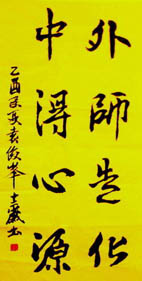 外師造化
中得心源
乙酉年夏袁俊峰書